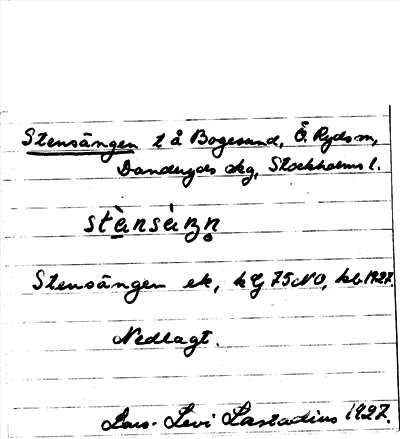 Stensängen t å Bogesund, Ö. Ryds sn,
Danderyds skg, Stockholms l.
stὲnsὰŋn̥
Stensängen ek, kG 75 NO, kb 1927.
Nedlagt.
Lars-Levi Læstadius 1927.